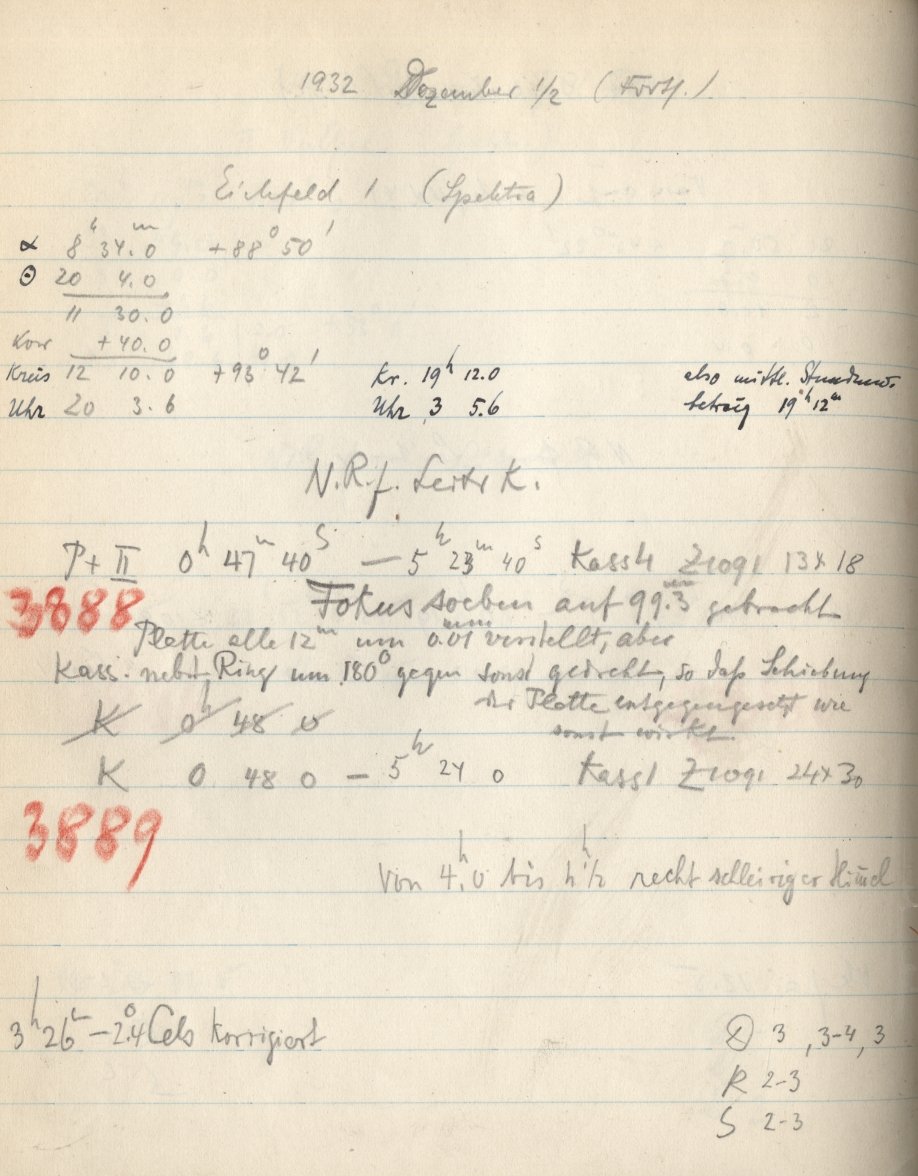 1932 Dezember 1/2 (Forts.)
Eichfeld 1 (Spektra)
α 8h 34.0m +88° 50'
Θ 20 4.0
11 30.0
Korr +40.0
Kreis 12 10.0 +93° 42' Kr. 19h 12.0 also mittl. Stundenw.
Uhr 20 3.6 Uhr 3 5.6 betrag 19h 12m
N.R.f. K.
P+II 0h 47m 40s — 5h 23m 40s Kass4 Zrog1 13x18
3888 Fokus soeben auf 99.3mm gebracht
Platte alle 12m um 0.01mm verstellt, aber
Kass. nebst Ring um 180° gegen sonst gedreht, so daß Schiebung
der Platte entgegengesetzt wie
K 0h 48 0 sonst wirkt.
K 0 48 0 — 5h 24 0 Kass1 Zrog1 24x30
3889
Von 4h.0 bis 4h½ recht schleiriger Himmel
3h 26m −2°.4 Cels korrigiert
3, 3-4, 3
R 2-3
S 2-3